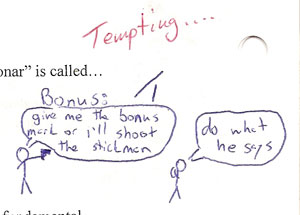 Tempting....
onar” is called…
Bonus:
give me the bonus
mark or i'll shoot
the stickman
do what
he says